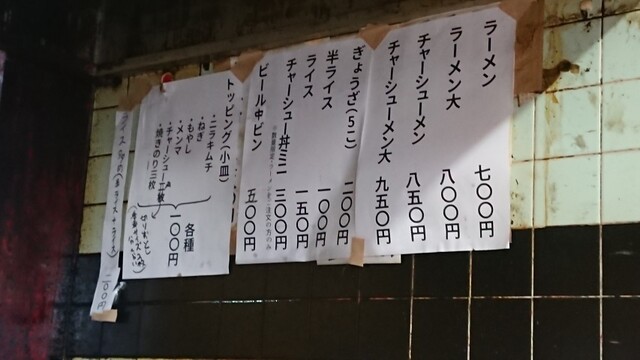 ラーメン 七〇〇円
ラーメン大 八〇〇円
チャーシューメン 八五〇円
チャーシューメン大 九五〇円
ぎょうざ(5こ) 二〇〇円
半ライス 一〇〇円
ライス 一五〇円
チャーシュー丼ミニ 三〇〇円
ビール中ビン 五〇〇円
トッピング(小皿)
・ニラキムチ
・ねぎ
・もやし
・メンマ
・チャーシュー二枚
・焼きのり三枚
各種
一〇〇円
二〇〇円